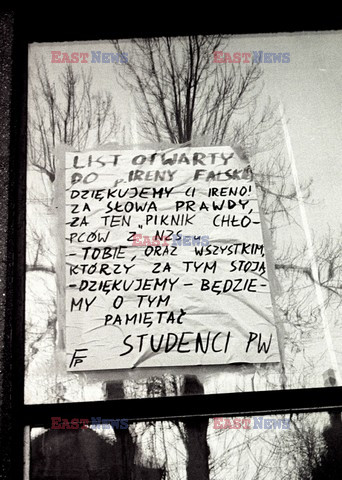 EASTNEWS EASTNEWS
LIST OTWARTY
DO „IRENY FALSKIEJ
DZIĘKUJEMY CI IRENO!
ZA SŁOWA PRAWDY,
ZA TEN „PIKNIK CHŁO-
PCÓW Z NZS„
- TOBIE, ORAZ WSZYSTKIM,
KTÓRZY ZA TYM STOJĄ
-DZIĘKUJEMY - BĘDZIE-
MY O TYM
PAMIĘTAĆ
STUDENCI PW
EASTNEWS
EASTNEWS EASTNEWS